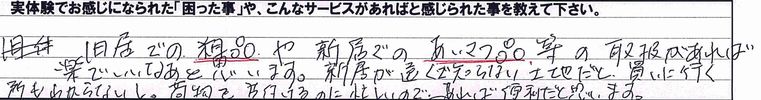 実体験でお感じになられた「困った事」や、こんなサービスがあればと感じられた事を教えて下さい。
旧居での粗品や新居でのあいさつ品等の取扱があれば
楽でいいなあと思います。新居が遠くて知らない土地だと、買いに行く
所もわからないし、荷物を片付けるのに忙しいので、あれば便利だと思います。